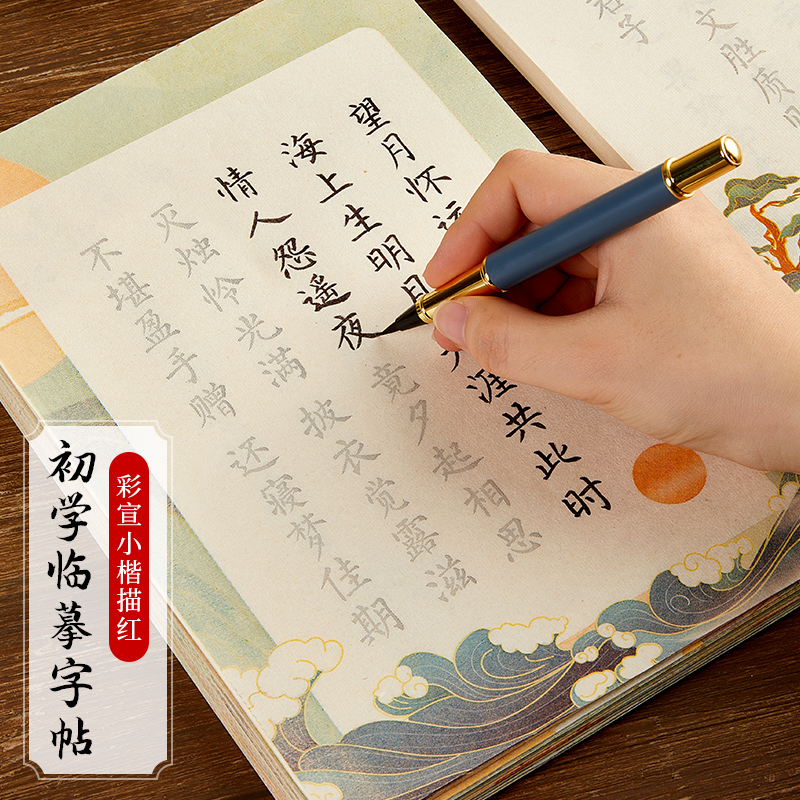 望月怀远
海上生明月天涯共此时
情人怨遥夜竟夕起相思
灭烛怜光满披衣觉露滋
不堪盈手赠还寝梦佳期
文胜质
君子
彩宣小楷描红
初学临摹字帖